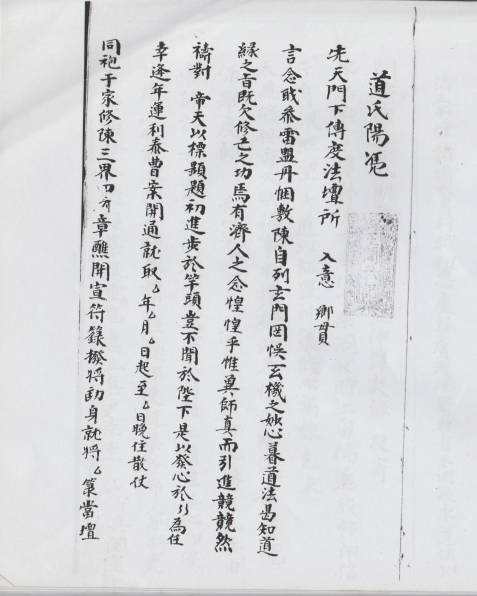 道氏陽凴
先天門下傳度法壇所 入意 鄉貫
言念戝忝雷盟丹悃敷陳自列玄門罔悞玄機之妙心暮道法曷知道
緣之旨既欠修己之功焉有濟人之念惶惶乎惟兾師真而引進競競然
禱對 帝天以標顯題初進步於竿頭豈不聞於陛下是以發心於 為任
幸逢年運利泰曹案開通就取 年 月 日起至 日晚住散仗
同袍于家修陳三界四府章醮開宣符籙撥將 身就將 籙當壇